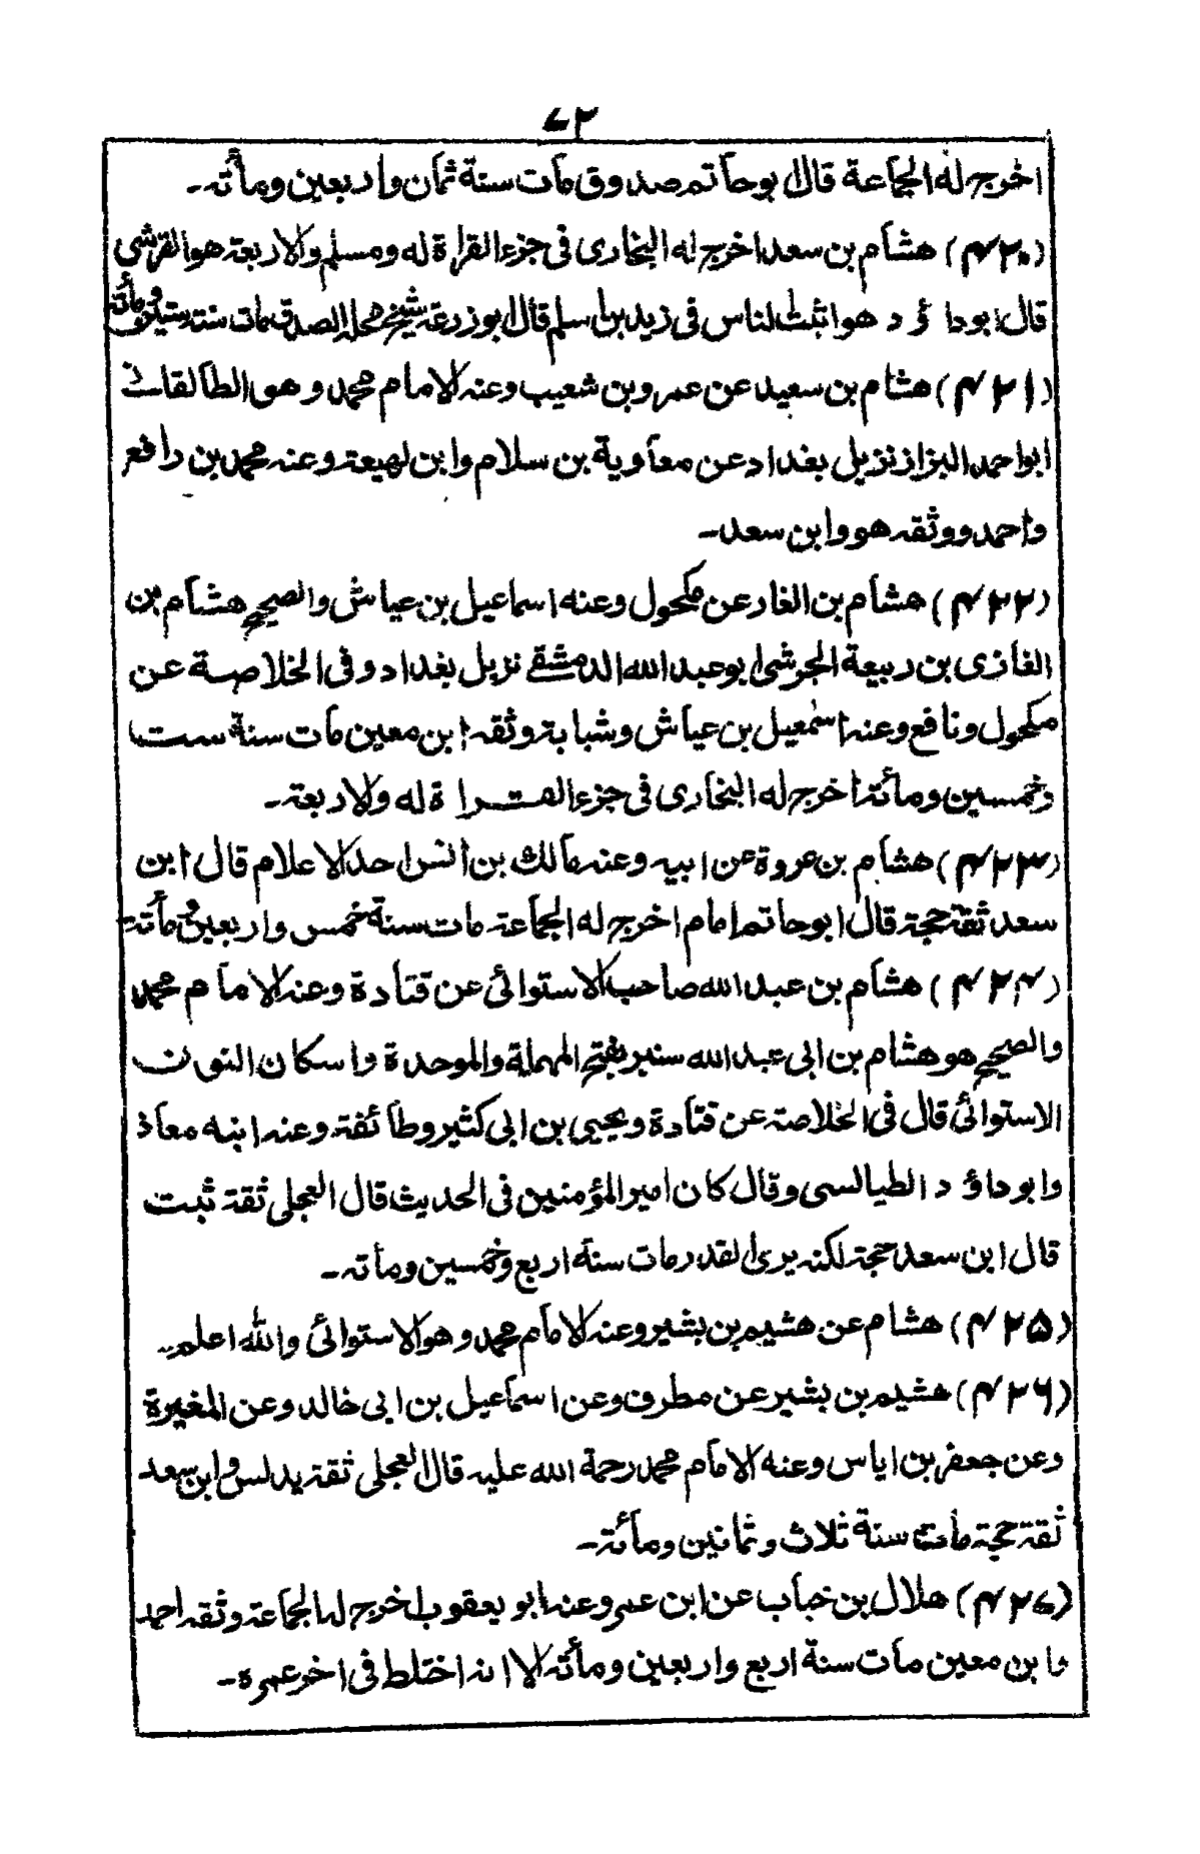 ۷۲
اخرج له الجماعة قال ابوحاتم صدوق مات سنة ثمان واربعين ومأته۔
(۴۲۰) هشام بن سعد اخرج له البخاری فی جزء القراة له ومسلم والاربعة هو القرشی
قال ابوداؤد هو اثبت الناس فی زيد بن اسلم قال ابوزرعة شيخ محله الصدق مات سنة ستين ومأته
(۴۲۱) هشام بن سعيد عن عمرو بن شعيب وعنه الامام محمد وهو الطالقانی
ابواحمد البزاز نزيل بغداد عن معاوية بن سلام وابن لهيعة وعنه محمد بن رافع
واحمد ووثقه هو وابن سعد۔
(۴۲۲) هشام بن الغار عن مكحول وعنه اسماعيل بن عياش والصحيح هشام بن
الغازی بن ربيعة الجرشی ابوعبد الله الدمشقی نزيل بغداد وفی الخلاصة عن
مكحول ونافع وعنه اسمعيل بن عياش وشبابة وثقه ابن معين مات سنة ست
وخمسين ومأئة اخرج له البخاری فی جزء القراة له والاربعة۔
(۴۲۳) هشام بن عروة عن ابيه وعنه مالك بن انس احد الاعلام قال ابن
سعد ثقة حجة قال ابوحاتم امام اخرج له الجماعة مات سنة خمس واربعين ومأئة
(۴۲۴) هشام بن عبد الله صاحب الاستوائی عن قتادة وعنه الامام محمد
والصحيح هو هشام بن ابی عبد الله سنبر بفتح المهملة والموحدة واسكان النون
الاستوائی قال فی الخلاصة عن قتادة ويحيی بن ابی كثير وطائفة وعنه ابنه معاذ
وابوداؤد الطيالسی وقال كان امير المؤمنين فی الحديث قال العجلی ثقة ثبت
قال ابن سعد حجة لكنه يری القدر مات سنة اربع وخمسين ومأته۔
(۴۲۵) هشام عن هشيم بن بشير وعنه الامام محمد وهو الاستوائی والله اعلم۔
(۴۲۶) هشيم بن بشير عن مطرف وعن اسماعيل بن ابی خالد وعن المغيرة
وعن جعفر بن اياس وعنه الامام محمد رحمة الله عليه قال العجلی ثقة يدلس وابن سعد
ثقة حجة مات سنة ثلاث وثمانين ومأئة۔
(۴۲۷) هلال بن خباب عن ابن عمر وعنه ابو يعقوب اخرج له الجماعة وثقه احمد
وابن معين مات سنة اربع واربعين ومأئة الا انه اختلط فی اخر عمره۔